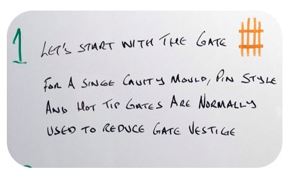 1 LET'S START WITH THE GATE
FOR A SINGE CAVITY MOULD, PIN STYLE
AND HOT TIP GATES ARE NORMALLY
USED TO REDUCE GATE VESTIGE